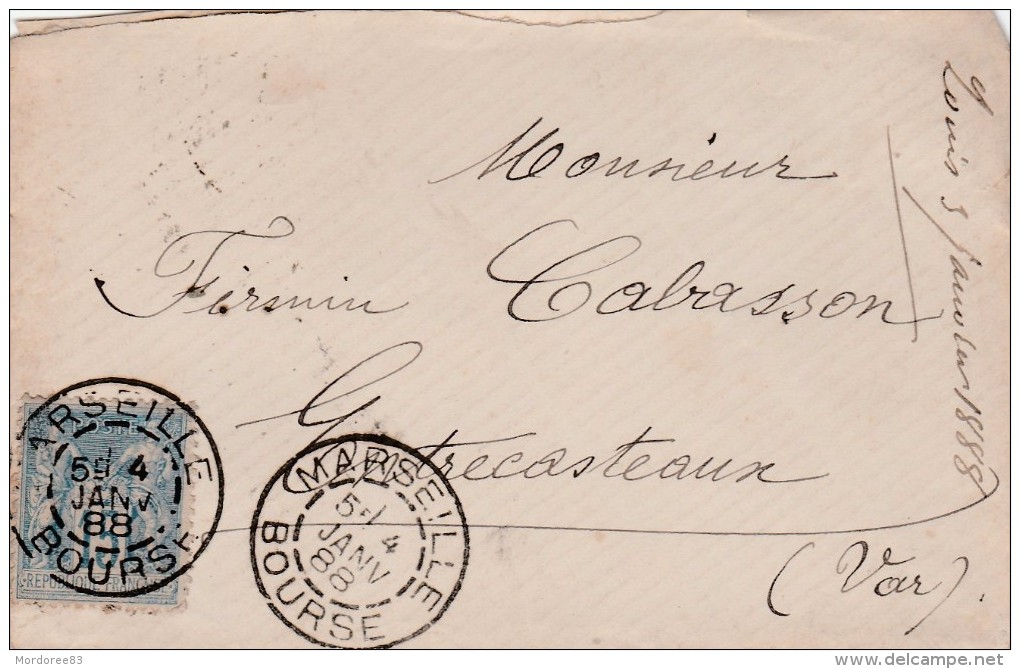 Monsieur
Firmin Cabasson
Entrecasteaux
(Var).
Louis 3 Janvier 1888
MARSEILLE
5E/ 4
JANV
88
BOURSE
15
REPUBLIQUE FRANÇAISE
MARSEILLE
5E/ 4
JANV
88
BOURSE
Mordoree83
www.delcampe.net